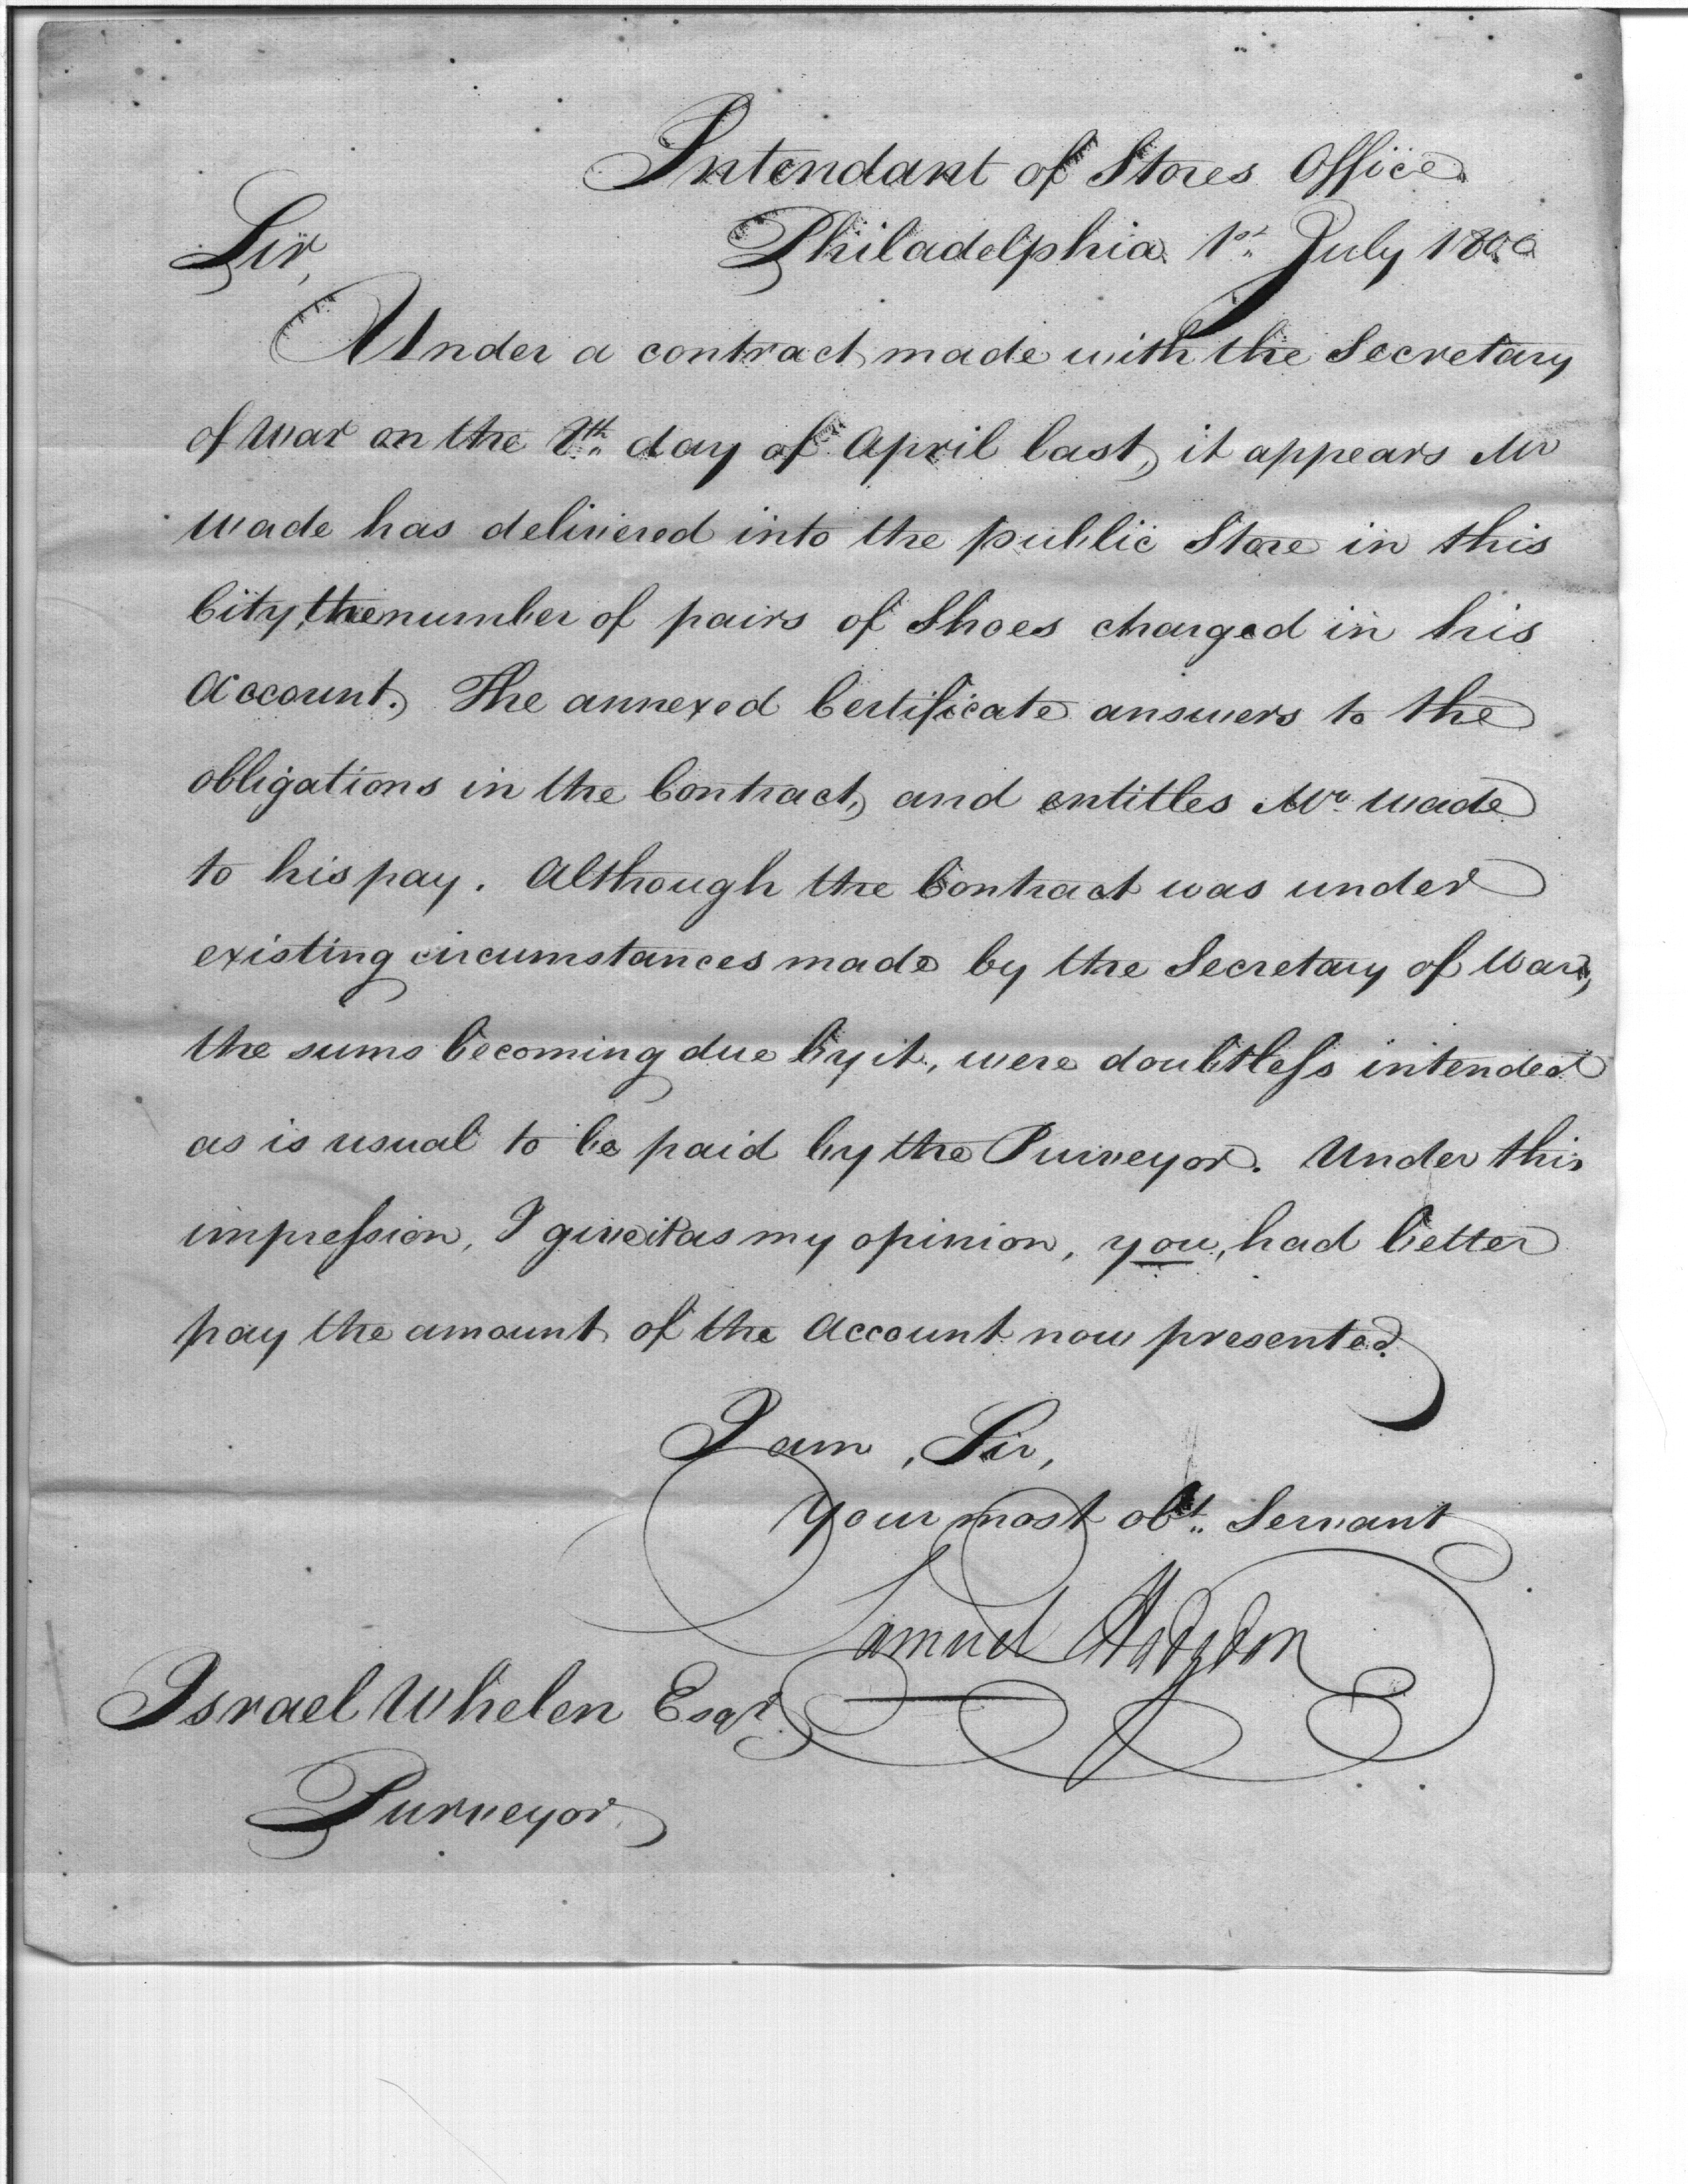 Intendant of Stores Office
Sir,
Philadelphia 1st July 1800
Under a contract, made with the Secretary
of War on the 8th day of April last, it appears Mr
Wade has delivered into the public Store in this
City, the number of pairs of Shoes charged in his
Account. The annexed Certificate answers to the
obligations in the Contract, and entitles Mr Wade
to his pay. Although the Contract was under
existing circumstances made by the Secretary of War,
the sums becoming due by it, were doubtless intended
as is usual to be paid by the Purveyor. Under this
impression, I give it as my opinion, you, had better
pay the amount of the Account now presented.
I am, Sir,
your most obt. Servant
Samuel Hodgdon
Israel Whelen Esqr.
Purveyor